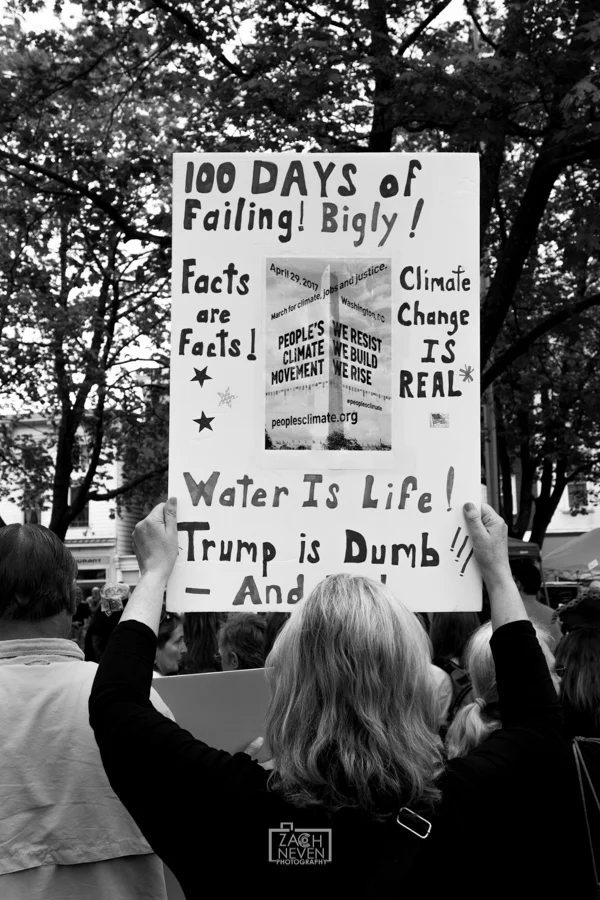 100 DAYS of
Failing! Bigly!
Facts
are
Facts!
April 29, 2017
March for climate, jobs and justice.
Washington, DC
PEOPLE'S
CLIMATE
MOVEMENT
WE RESIST
WE BUILD
WE RISE
#peoplesclimate
peoplesclimate.org
Climate
Change
IS
REAL*
Water Is Life!
Trump is Dumb!!!
- And
ZACH
NEVEN
PHOTOGRAPHY